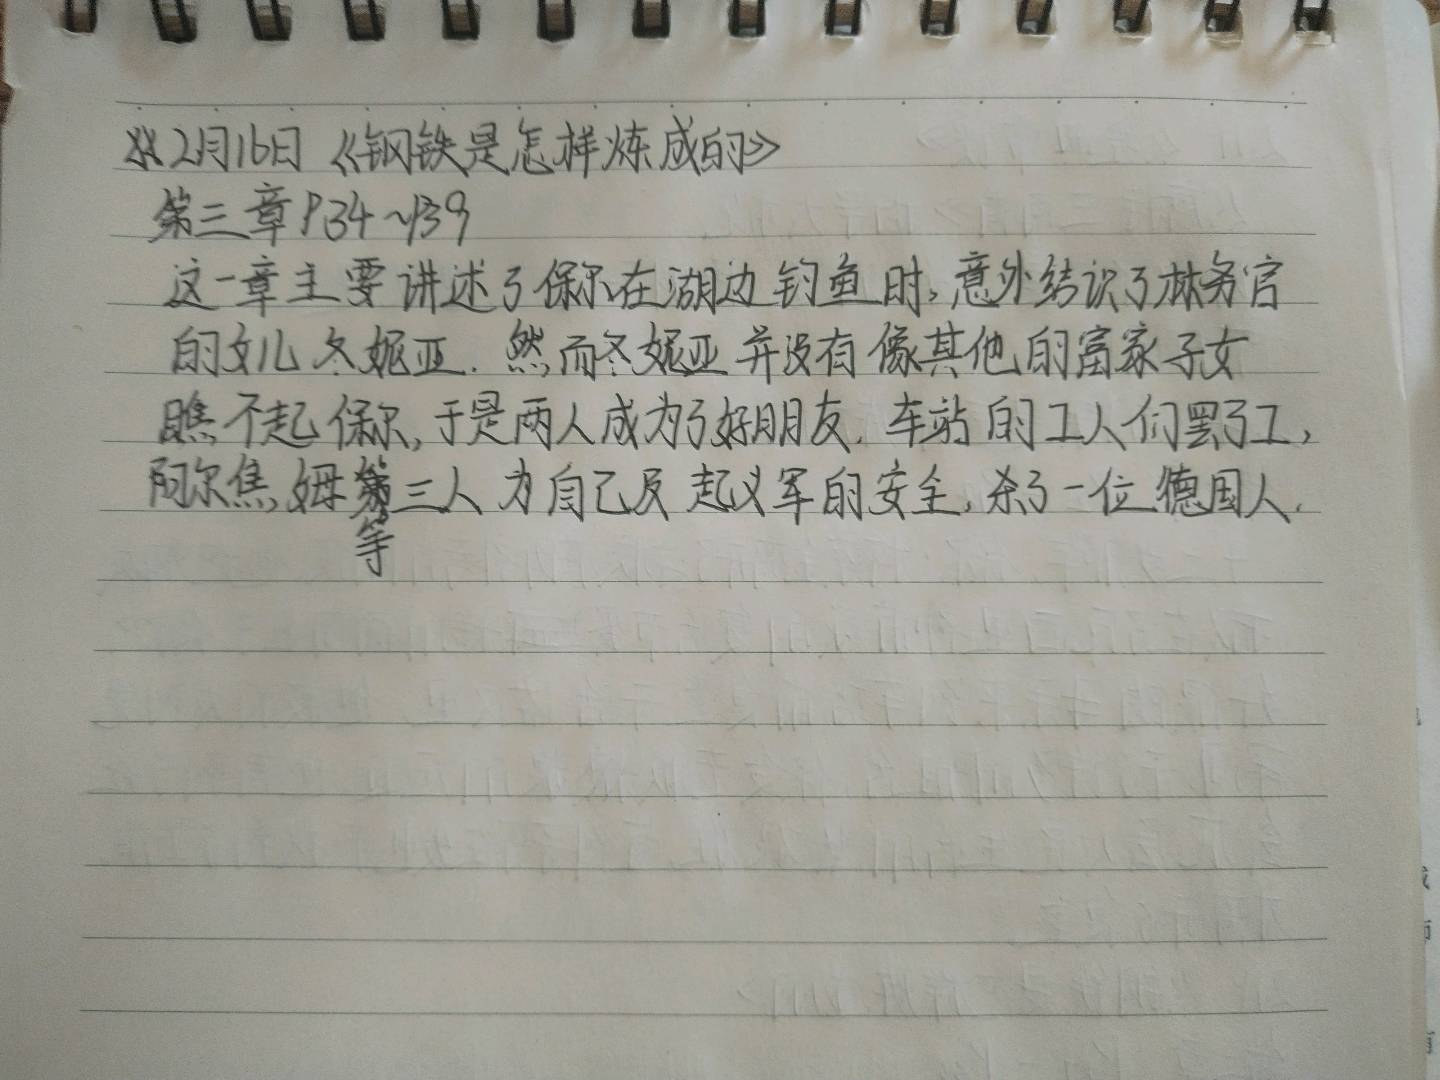 2月16日《钢铁是怎样炼成的》
第三章P34~P39
这一章主要讲述了保尔在湖边钓鱼时,意外结识了林务官
的女儿冬妮亚.然而冬妮亚并没有像其他的富家子女
瞧不起保尔,于是两人成为了好朋友.车站的工人们罢了工,
阿尔焦姆等三人为自己及起义军的安全,杀了一位德国人.